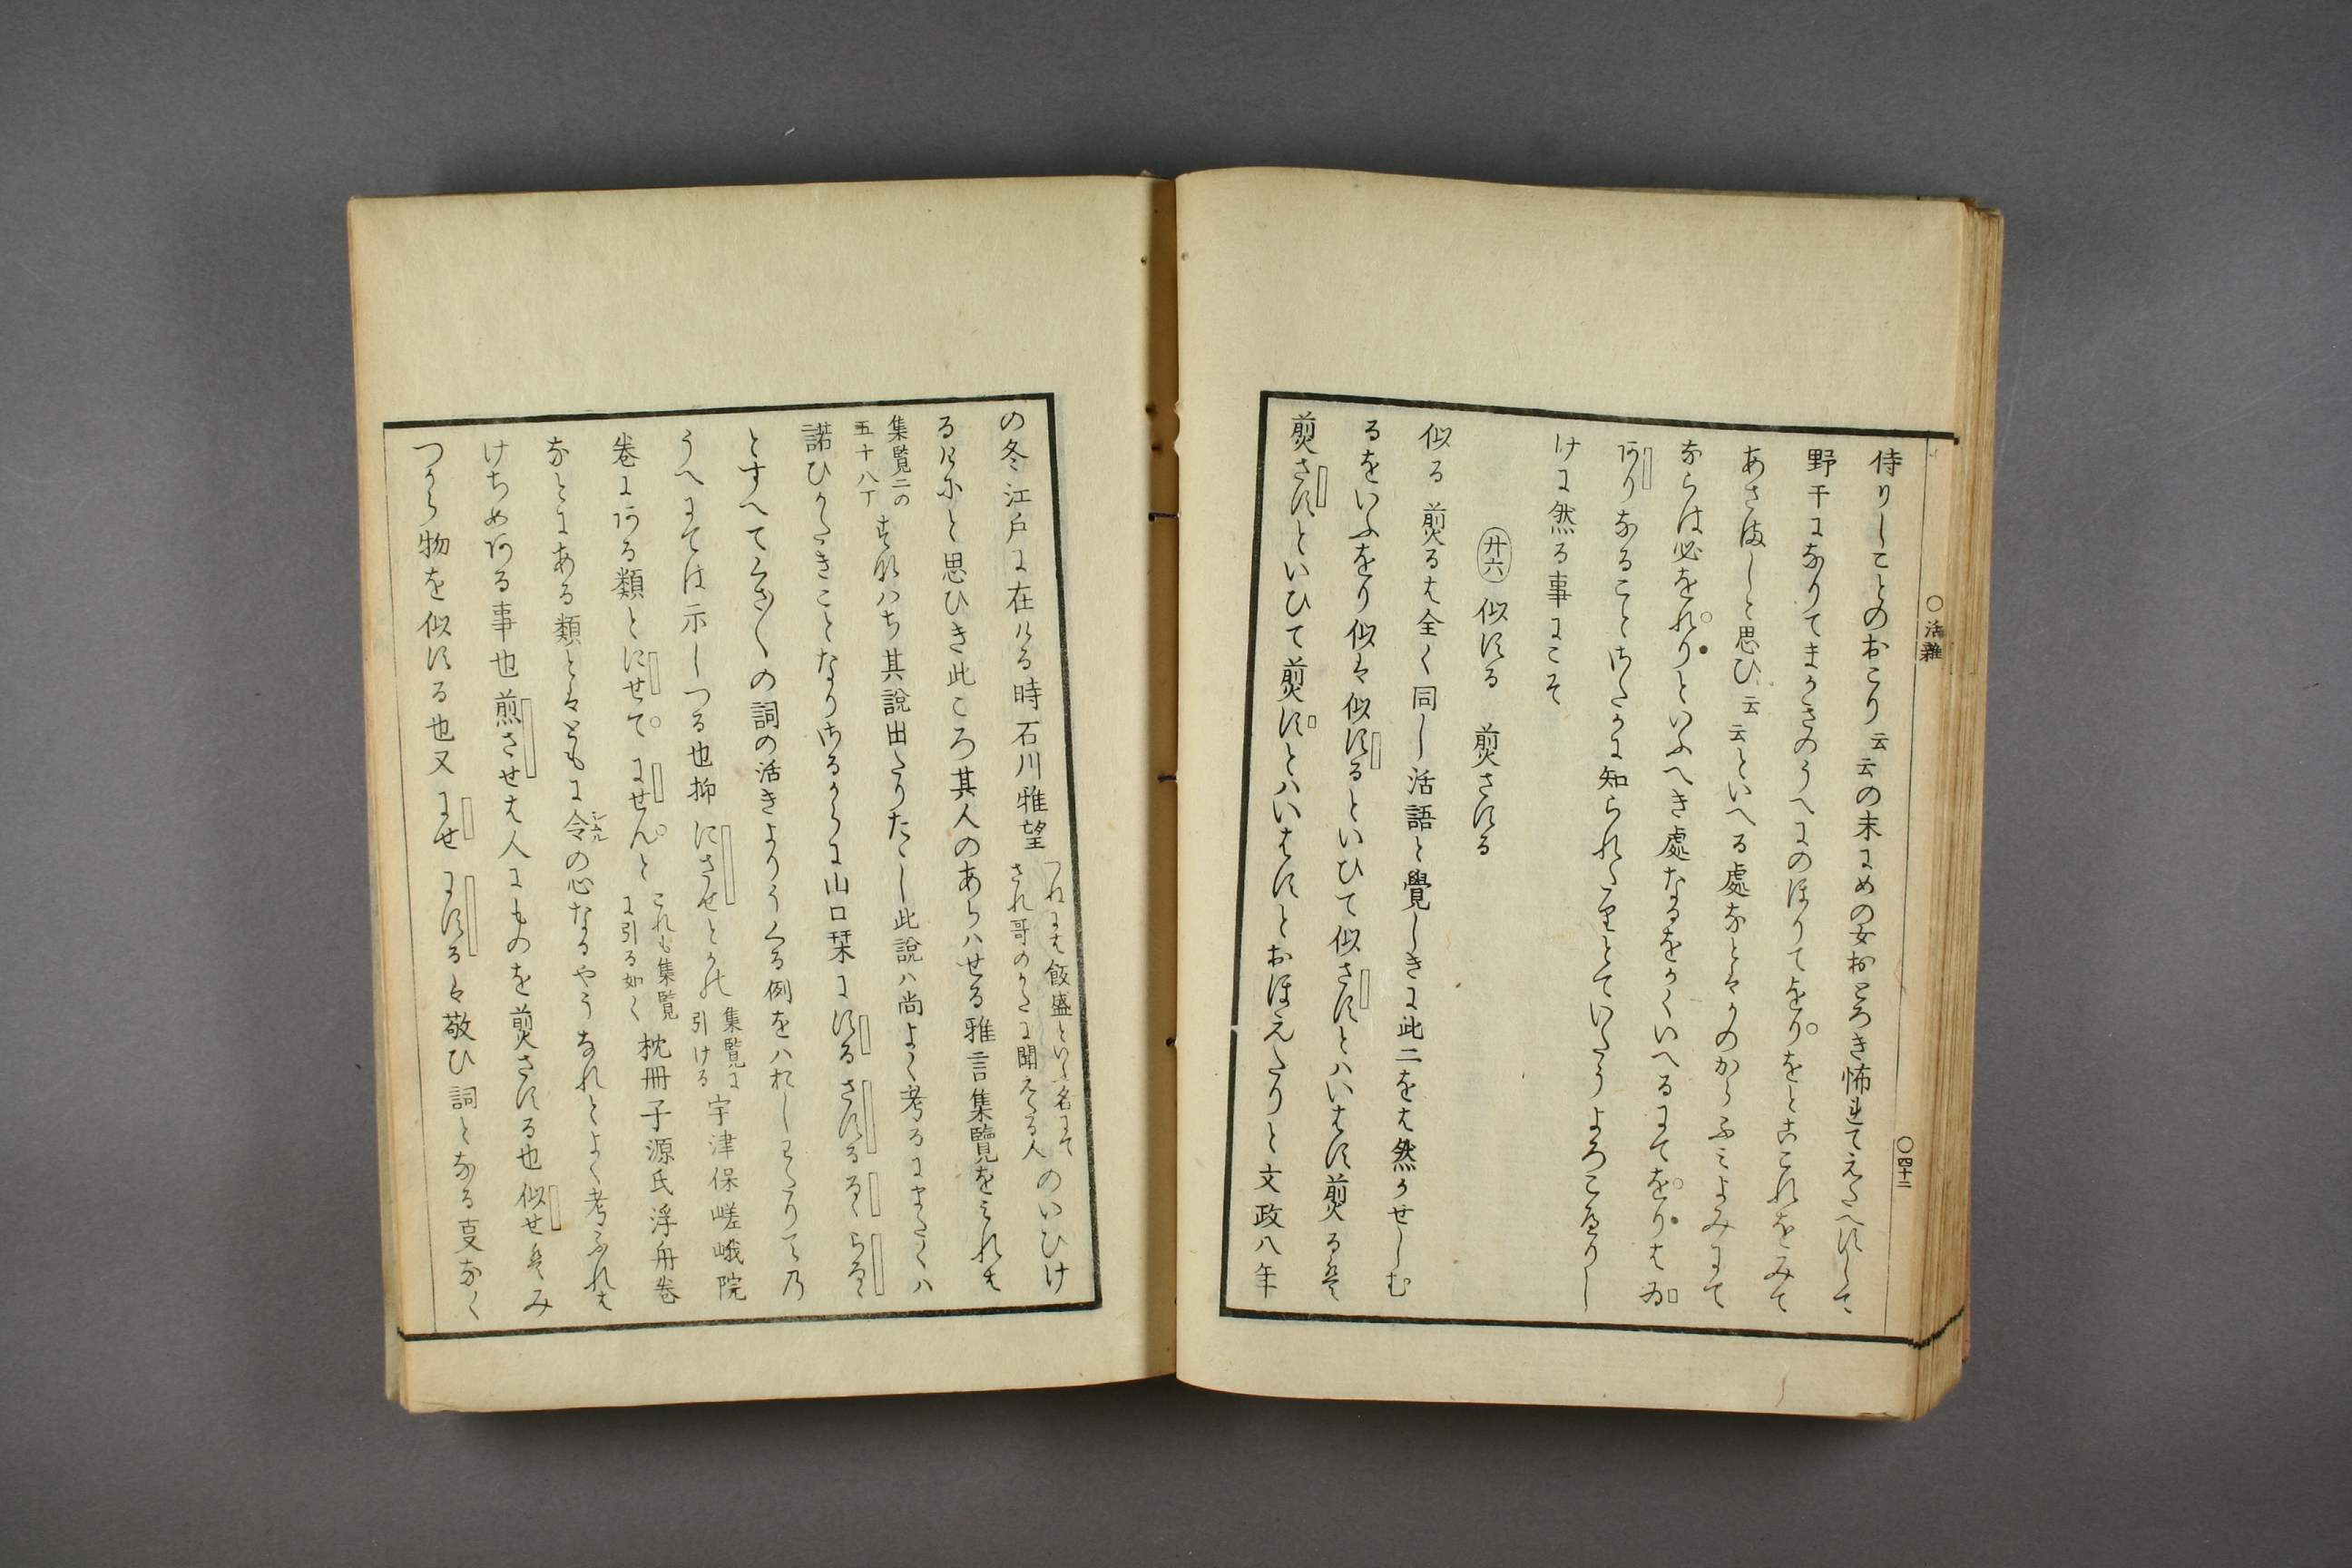 ○活雜
○四十二
侍りしことのおこり云云の末にめの女おとろき怖れてえたへすして
野干になりてまかきのうへにのほりてをりをとここれをみて
あさましと思ひ云云といへる處なととかのからふみよみにて
ならは必をれりといふへき處なるをかくいへるにてをりはゐ
ありなること
けに然る事にこそ
廿六 似する 煎さする
似る煎るは全く同し活語と覺しきに此二をは然かせしむ
るをいふをり似は似するといひて似さすとハいはす煎るは
煎さすといひて煎すとハいはすとおほえたりと文政八年
の冬江戸に在ける時石川雅望つねには飯盛といふ名にてされ哥のかたに聞えたる人のいひけ
るけにと思ひき此ころ其人のあらハせる雅言集覽をみれは
集覧二の五十八丁すなハち其說出たりたゝし此說ハ尚よく考るにまたくハ
諾ひかたきことなりさるからに山口栞にする さする るゝ らるゝ
とすへてくさ〳〵の詞の活きよりうくる例をハれしわたりて乃
うへにては示しつる也抑にさせとかれ集覧に引ける宇津保嵯峨院
卷にある類とにせて にせんとこれも集覧に引る如く枕冊子源氏浮舟卷
なとにある類とはともに令シムルの心なるやうなれとよく考ふれは
けちめある事也煎させは人にものを煎さする也似せはみ
つから物を似する也又にせ にするは敬ひ詞となる叓なく